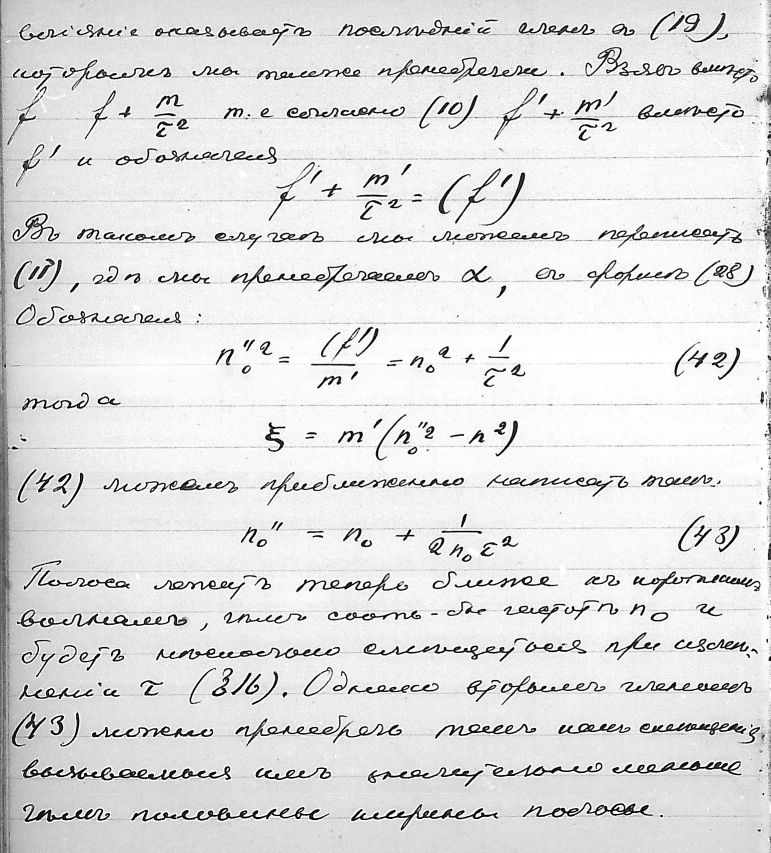 вліяніе оказываетъ послѣдній членъ въ (19),
которымъ мы также пренебрегли. Взявъ вмѣсто
f f + m/τ² т. е согласно (10) f' + m'/τ² вмѣсто
f' и обозначая
f' + m'/τ² = (f')
Въ такомъ случаѣ мы можемъ переписать
(11), гдѣ мы пренебрегаемъ α, въ формѣ (28)
Обозначая:
n₀''² = (f')/m' = n₀² + 1/τ² (42)
тогда
:
ξ = m'(n₀''² − n²)
(42) можемъ приближенно написать такъ.
n₀'' = n₀ + 1/(2n₀τ²) (43)
Полоса лежитъ теперь ближе къ короткимъ
волнамъ, чѣмъ соотв-бы частотѣ n₀ и
будетъ нѣсколько смѣщаться при измѣ-
неніи τ (316). Однако вторымъ членомъ
(43) можно пренебречь такъ какъ смѣщенія
вызываемыя имъ значительно меньше
чѣмъ половины ширины полосы.